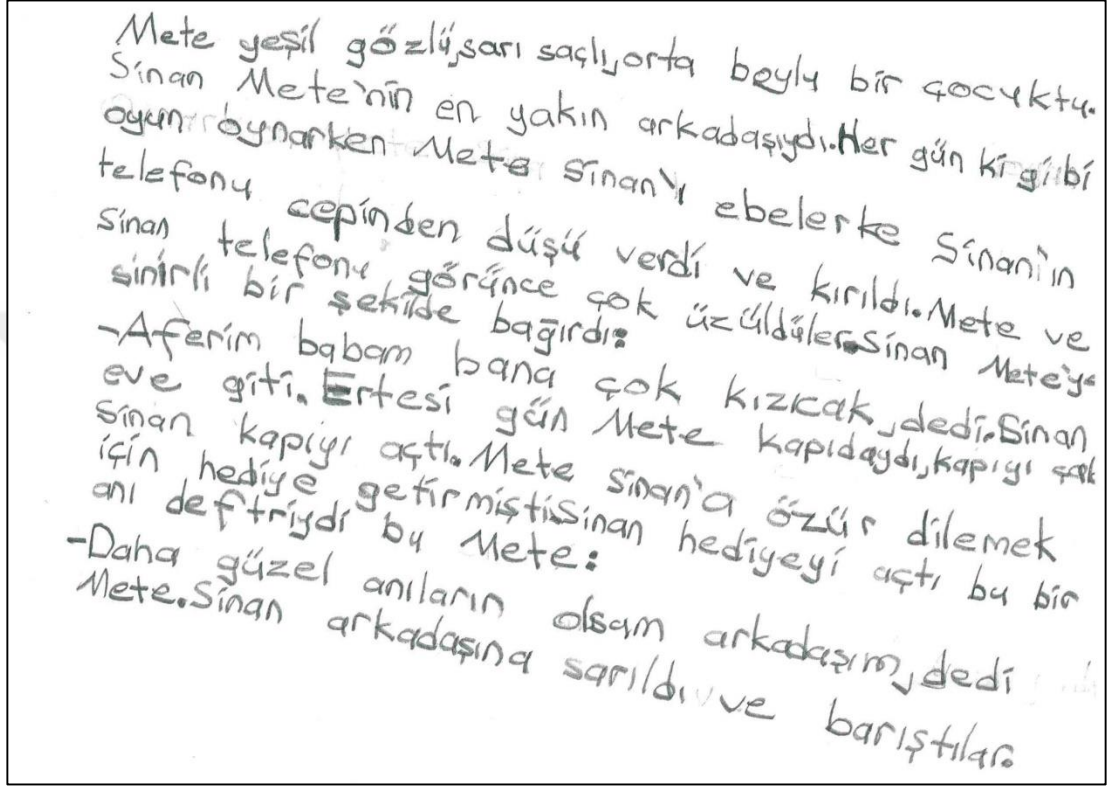 Mete yeşil gözlü,sarı saçlı,orta boylu bir çocuktu.
Sinan Mete'nin en yakın arkadaşıydı.Her gün ki gibi
oyun oynarken Mete Sinan'ı ebelerke Sinani'ın
telefonu cepinden düşü verdi ve kırıldı.Mete ve
Sinan telefonu görünce çok üzüldüler.Sinan Mete'ye
sinirli bir şekilde bağırdı:
-Aferim babam bana çok kızıcak,dedi.Sinan
eve giti.Ertesi gün Mete kapıdaydı,kapıyı
Sinan kapıyı açtı.Mete Sinan'a özür dilemek
için hediye getirmişti.Sinan hediyeyi açtı bu bir
anı deftriydi bu Mete:
-Daha güzel anıların olsam arkadaşım,dedi
Mete.Sinan arkadaşına sarıldı ve barıştılar.